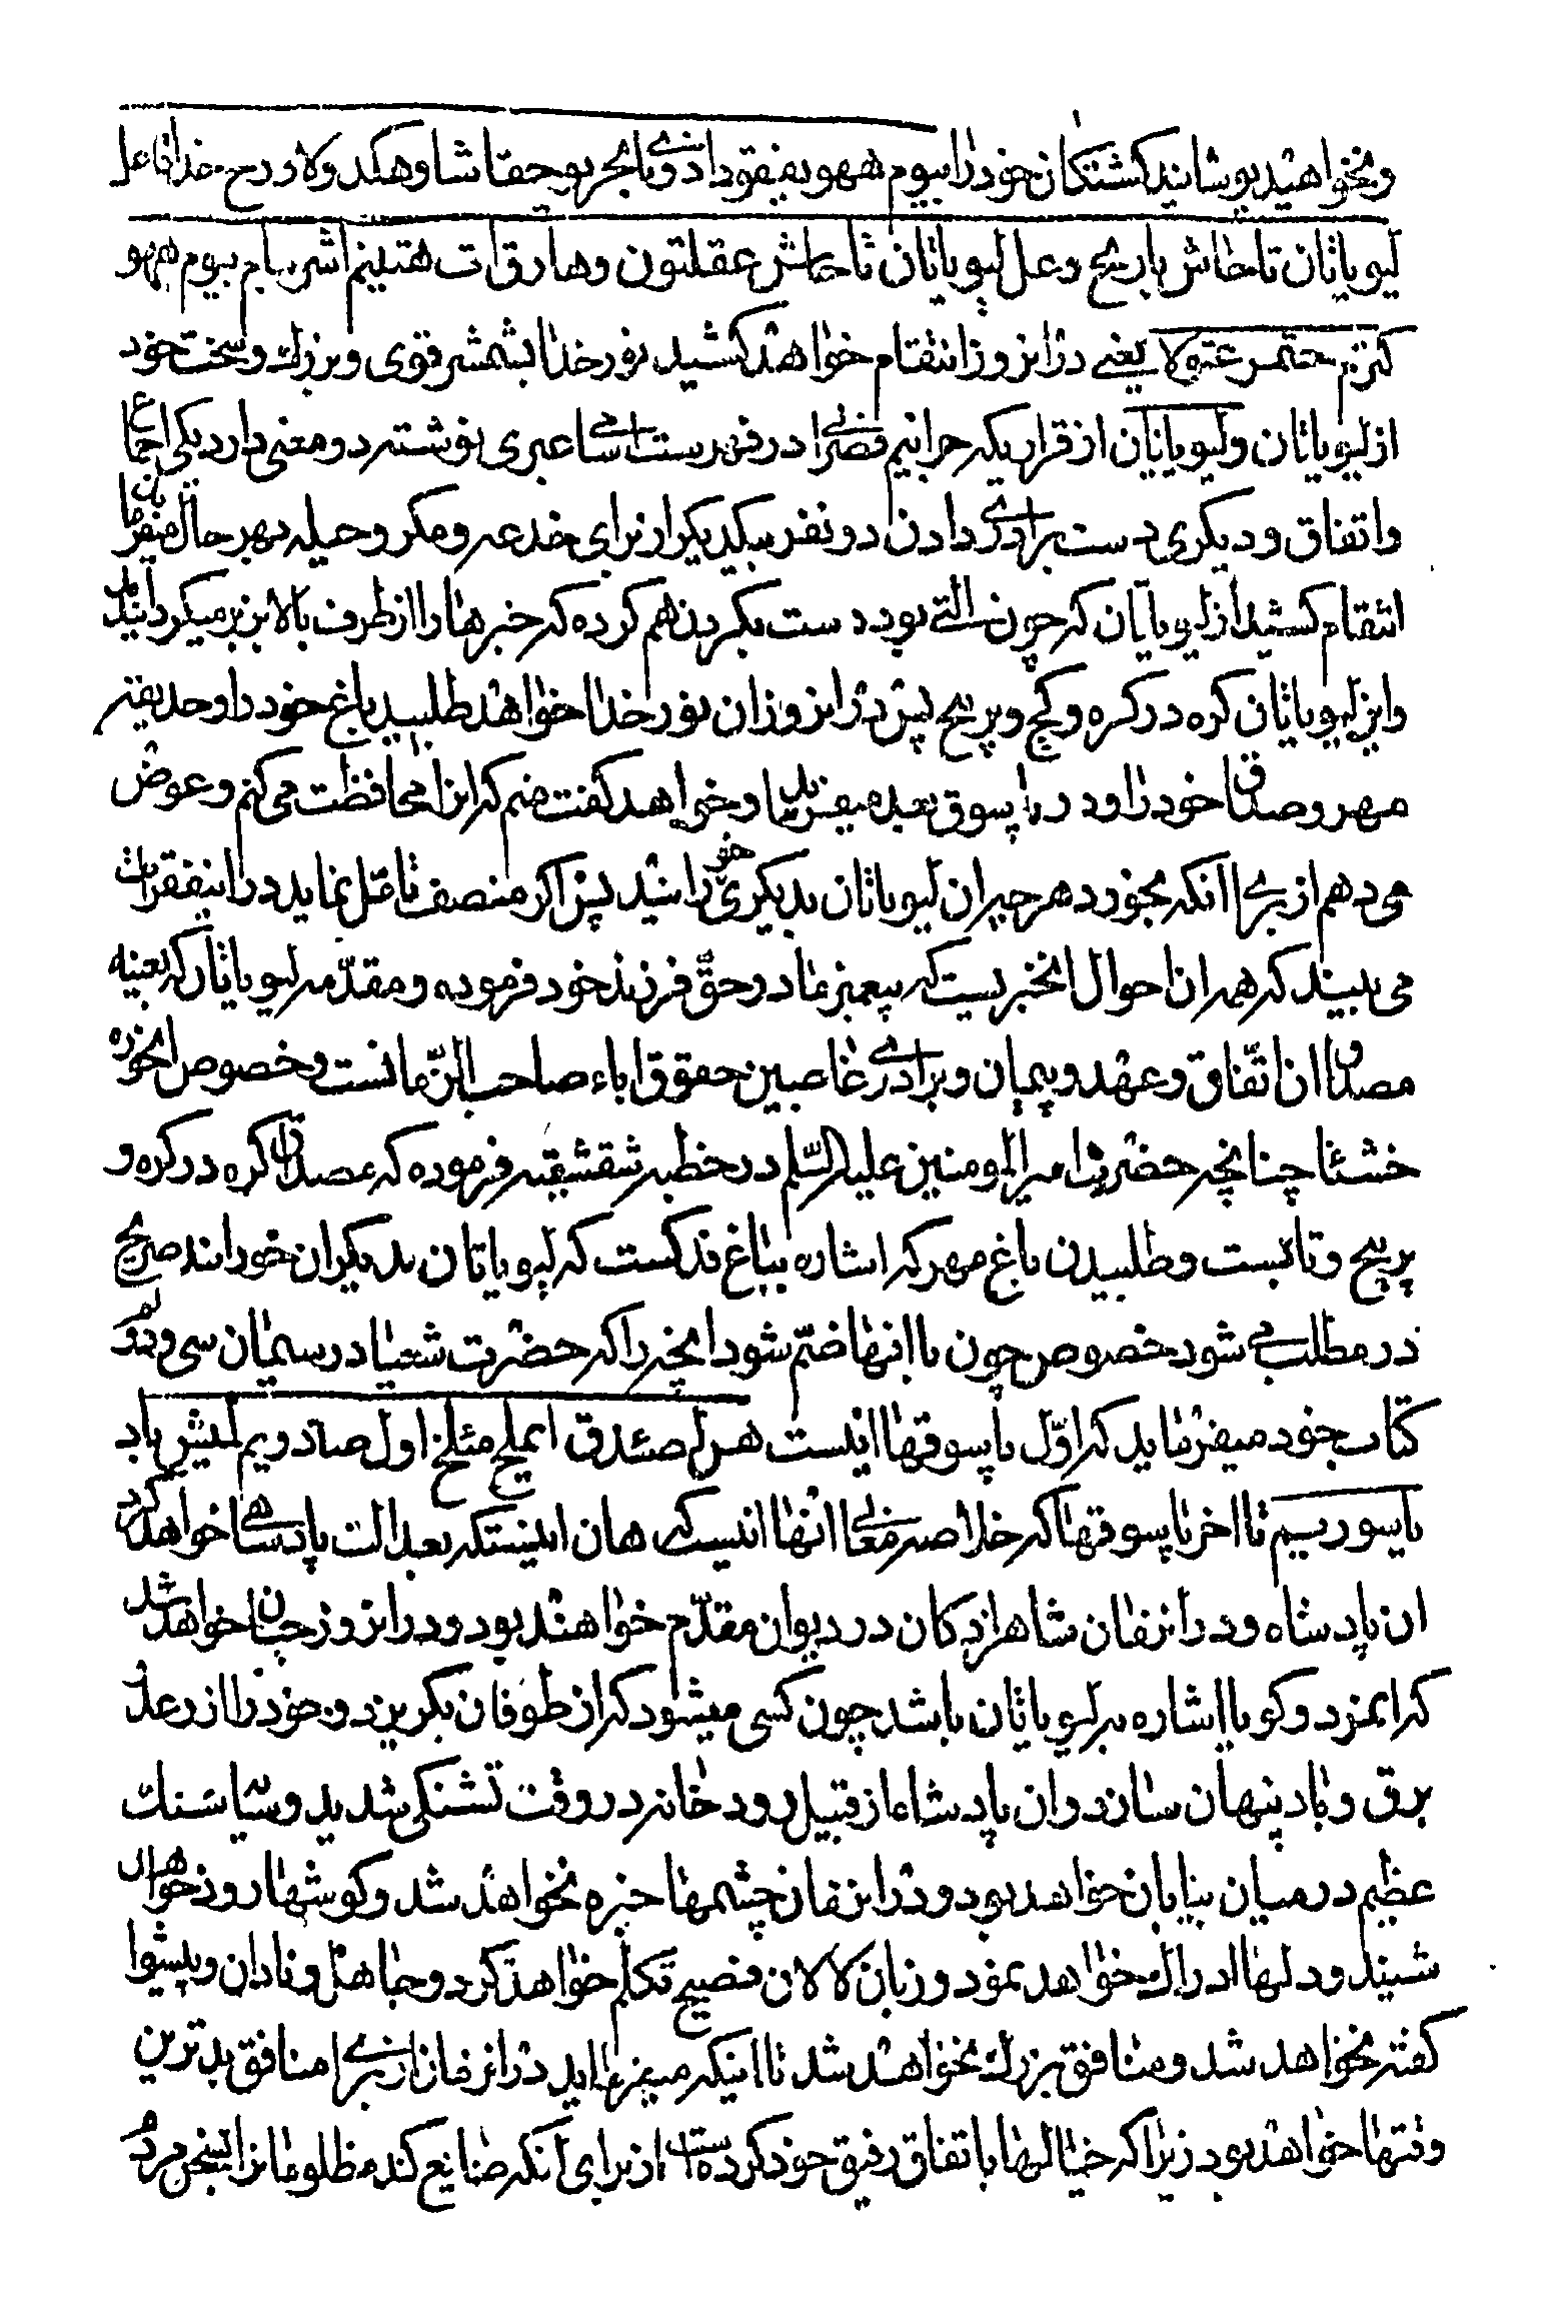 و نخواهید پوشانید کشتکان خود را بیوم ههو یفیقود ادنوی بحربو حقاشا و هکدولا و رح خدانا عل
لیویاتان تاحاش باریح و عل لیویاتان ناحاش عقلتون و هارق ات هتینم اشر بیام بیوم ههو
کرم حمر عنو لا یعنی در انروز انتقام خواهد کشید نور خدا بشمشیر قوی و بزرك و سخت خود
از لیویاتان و لیویاتان از قراریکه جرانیم قضیرا در فهرست اسامی عبری نوشته دو معنی دارد یکی اجماع
و اتفاق و دیکری دست برادری دادن دو نفر بیکدیکر از برای خدعه و مکر و حیله بهر حال میفرماید
انتقام کشید از لیویاتان که چون سالتی بود دست بکردن هم کرده که خبرها را از طرف بالا بزیر میکردانیدند
و این لیویاتان کره در کره و کج و پر پیچ پس در انروز ان نور خدا خواهد طلبید باغ خود را و حدیقه
مهر و صداق خود را و در پاسوق بعد میفرماید و خواهد کفت منم که انرا محافظت می کنم و عوض
می دهم از برای انکه بخورد هر چه ان لیویاتان بدیکری خورانید پس اکر منصف تامل نماید در این فقرات
می بیند که همه ان احوال انخبریست که پیغمبر ما در حق فرزند خود فرموده و مقدمه لیویاتان که بعینه
مصداق ان اتفاق و عهد و پیمان و برادری غاصبین حقوق اباء صاحب الزمانست و خصوص انحوزه
خشنا چنانچه حضرت امیر المومنین علیه السلم در خطبه شقشقیه فرموده که مصداق کره در کره و
پر پیچ و تابست و طلبیدن باغ مهر که اشاره بباغ فدکست که لیویاتان بدیکران خورانند صریح
در مطلب می شود خصوص چون با اینها ضم شود انچه را که حضرت شعیا در سیمان سی و دوم
کتاب خود میفرماید که اول پاسوقها اینست هن لصدق ایملخ مئلخ اول صادویم لمیش پاد
یاسوریم تا اخر پاسوقها که خلاصه معانی انها اینست که هان اینستکه بعدالت پادشاهی خواهد کرد
ان پادشاه و در انزمان شاهزادکان در دیوان مقدم خواهند بود و در انروز چنان خواهد شد
که انمرد و کویا اشاره بر لیویاتان باشد چون کسی میشود که از طوفان بکریزد و خود را از رعد
برق و باد پنهان سازد و ان پادشاه از قبیل رودخانه در وقت تشنکی شدید و سایه سنك
عظیم در میان بیابان خواهد بود و در انزمان چشمها خیره نخواهد شد و کوشها روز خواهند
شنید و دلها ادراك خواهد نمود و زبان لالان فصیح تکلم خواهد کرد و جاهل و نادان و پیشوا
کفته نخواهد شد و منافق بزرك نخواهد شد تا اینکه میفرماید در انزمان از برای منافق بدترین
وقتها خواهد بود زیرا که خیالها با اتفاق رفیق خود کرده است از برای آنکه ضایع کند مظلومانرا بسخن مردم